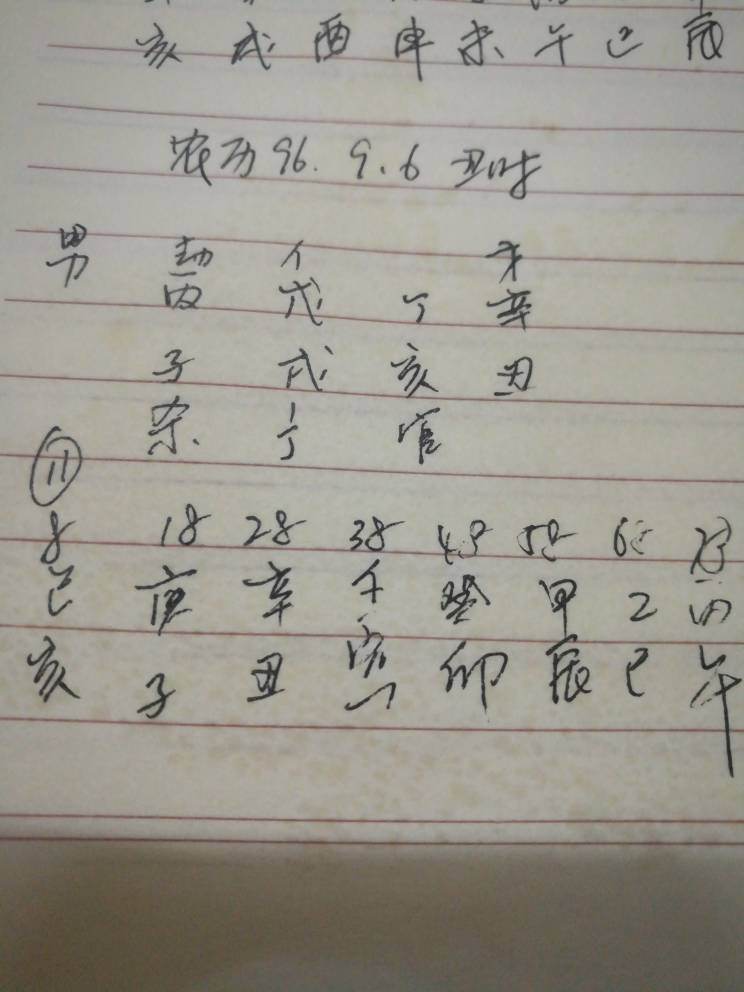 亥 戌 酉 申 未 午 巳 辰
农历96.9.6 丑时
男 劫 亻 才
丙 戊 丁 辛
子 戌 亥 丑
杀 官
11
8 18 28 38 48 58 68
己 庚 辛 壬 癸 甲 乙 丙
亥 子 丑 寅 卯 辰 巳 午